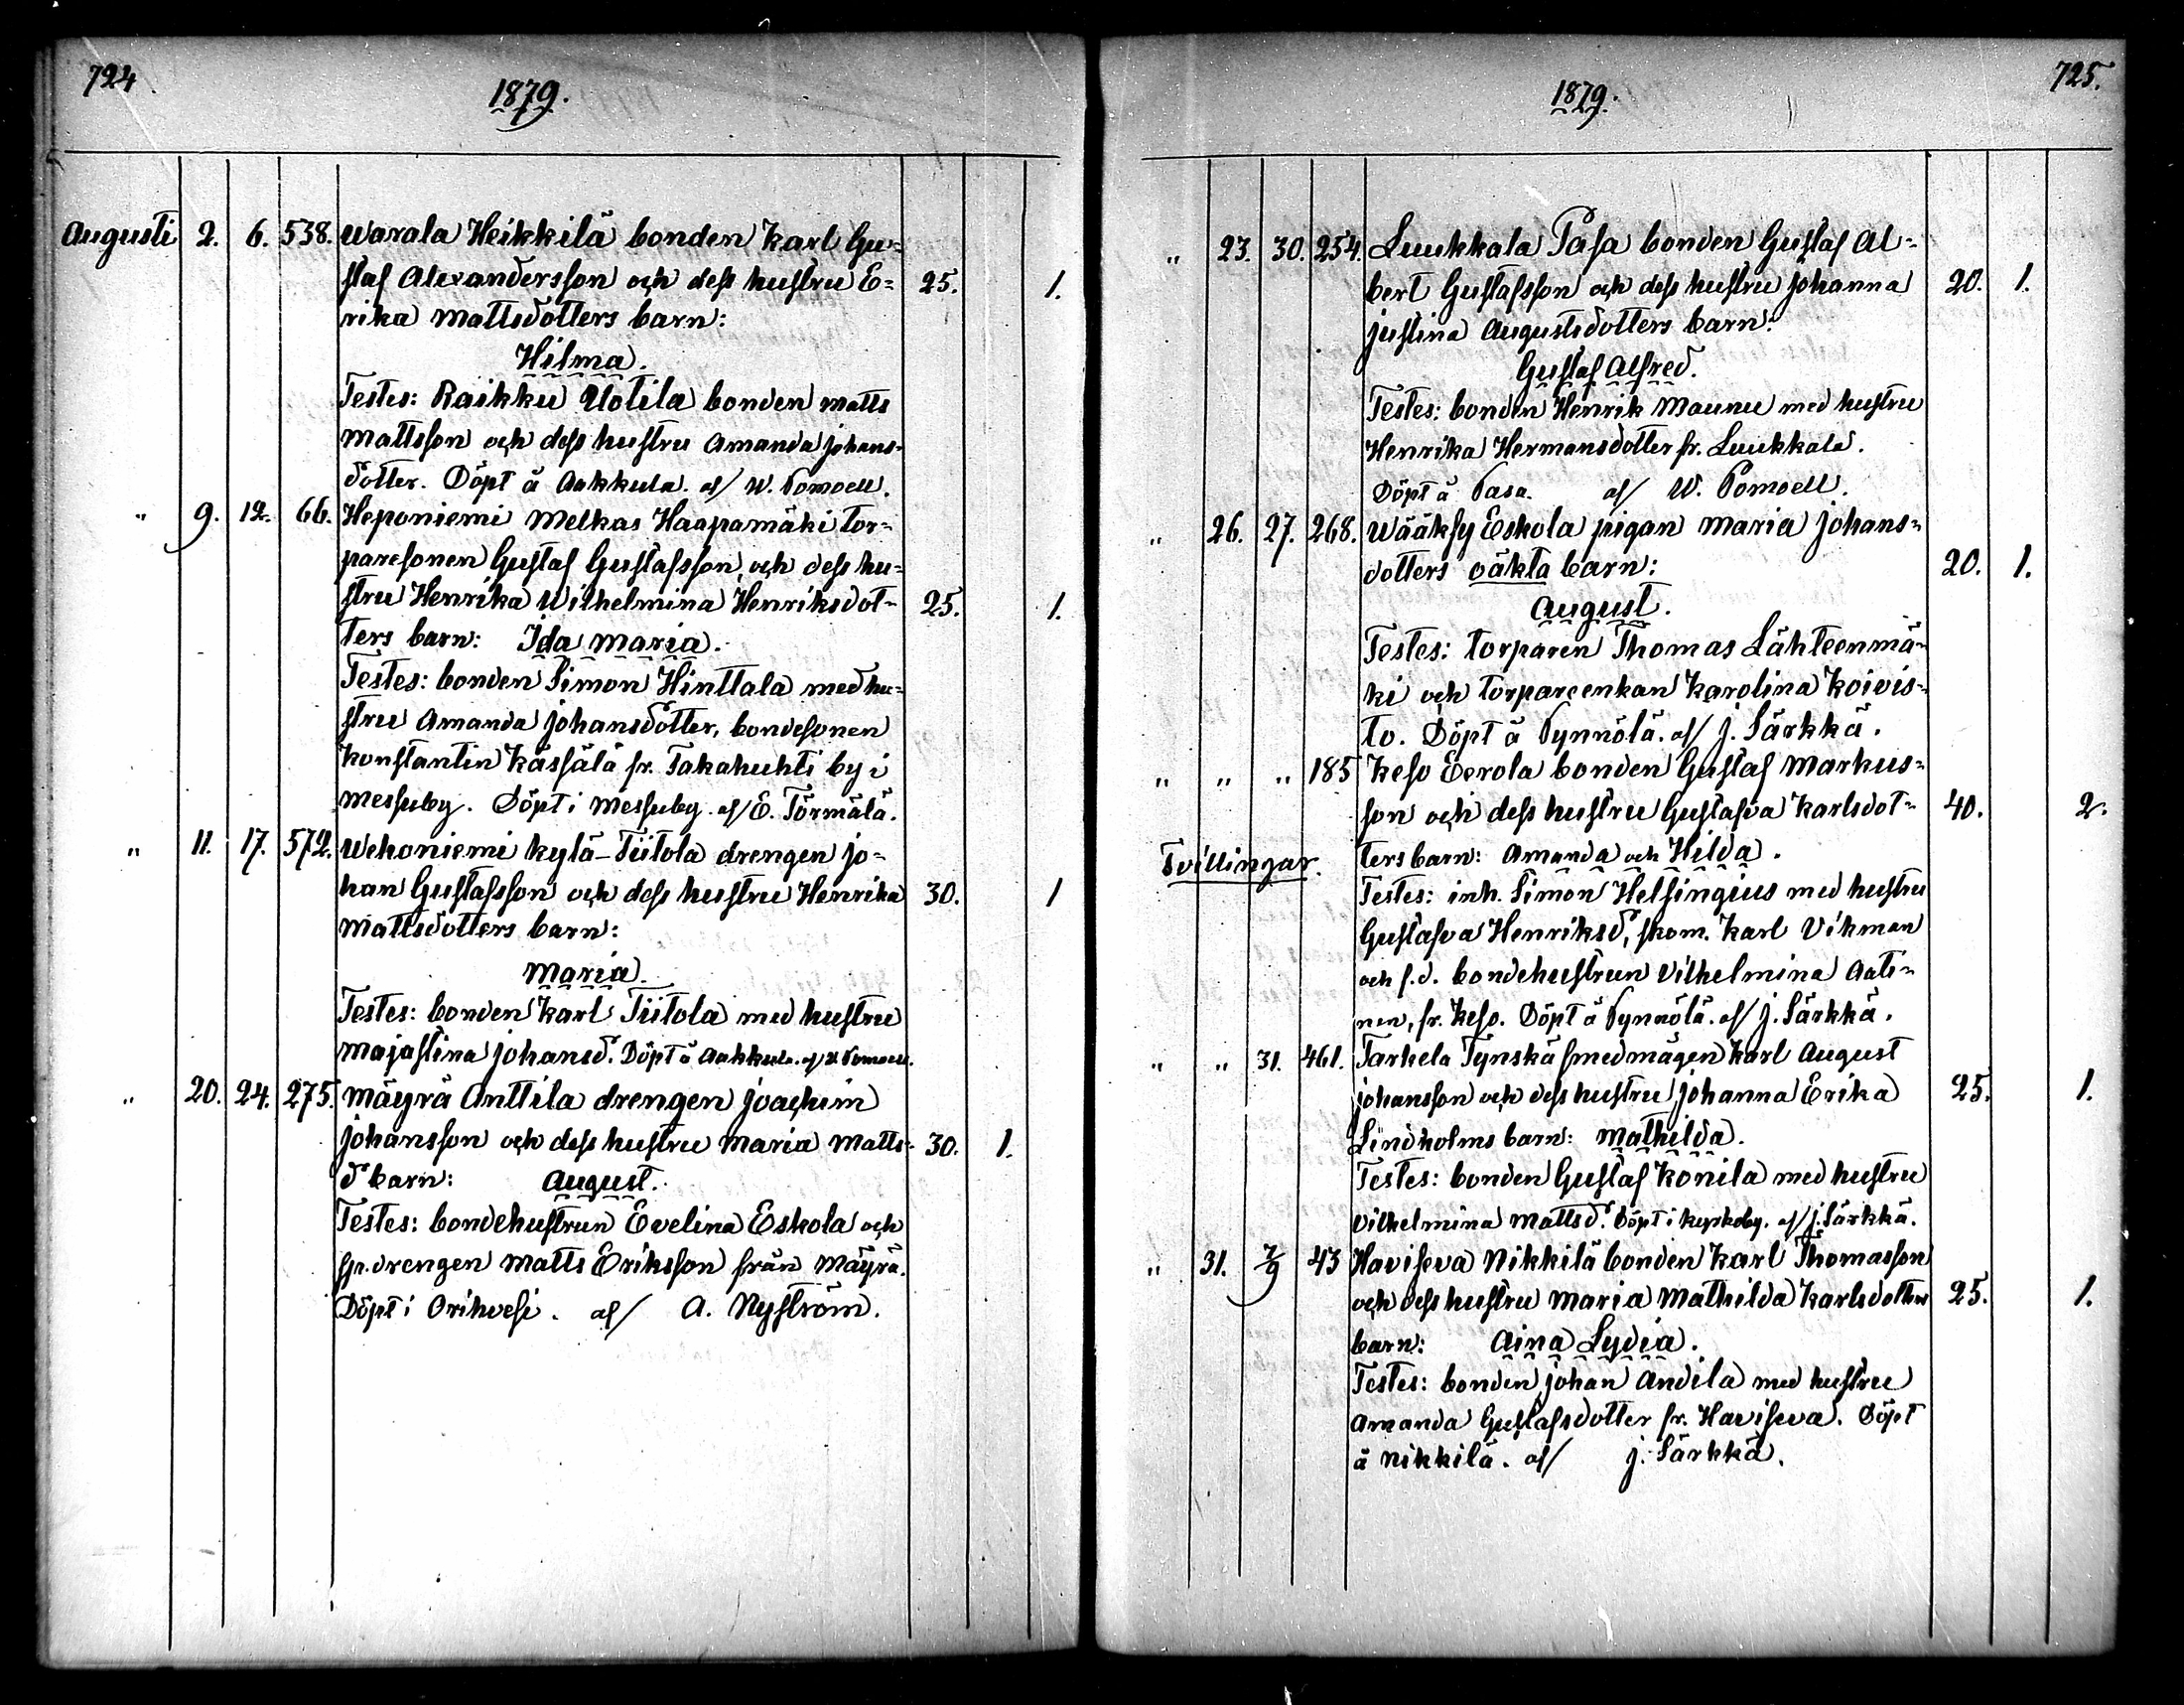 724
1879.
Augusti 2. 6. 538. Warala Heikkilä bonden Karl Gu=
staf Alexandersson och dess hustru E= 25. 1.
rika Mattsdotters barn:
Hilma.
Testes: Raikku Uotila bonden Matts
Mattsson och dess hustru Amanda Johans=
dotter. Döpt å Aakkula. af/ W. Pomoell.
" 9. 12. 66. Heponiemi Melkas Haapamäki tor=
paresonen Gustaf Gustafsson, och dess hu=
stru Henrika Wilhelmina Henriksdot= 25. 1.
ters barn: Ida Maria.
Testes: bonden Simon Hinttala med hu=
stru Amanda Johansdotter, bondesonen
Konstantin Kässälä fr. Takahuhti by i
Messuby. Döpt i Messuby. af/ E. Törmälä.
" 11. 17. 572. Wehoniemi kylä-Tiitola drengen Jo=
han Gustafsson och dess hustru Henrika 30. 1
Mattsdotters barn:
Maria.
Testes: bonden Karl Tiitola med hustru
Majastina Johansd. Döpt å Aakkula. af/ W. Pomoell.
" 20. 24. 275. Mäyrä Anttila drengen Joachim
Johansson och dess hustru Maria Matts= 30. 1.
d barn: August.
Testes: bondehustrun Evelina Eskola och
gr. drengen Matts Eriksson från Mäyrä.
Döpt i Orihvesi. af/ A. Nyström.
725.
1879.
" 23. 30. 254. Luukkala Pasa bonden Gustaf Al=
bert Gustafsson och dess hustru Johanna 20. 1.
Justina Augustsdotters barn:
Gustaf Alfred.
Testes: bonden Henrik Maunu med hustru
Henrika Hermansdotter fr. Luukkala.
Döpt å Pasa. af/ W. Pomoell.
" 26. 27. 268. Wääksy Eskola pigan Maria Johans=
dotters oäkta barn: 20. 1.
August.
Testes: torparen Thomas Lähteenmä=
ki och torpareenkan Karolina Koivis=
to. Döpt å Pynnölä. af/ J. Särkkä.
" " " 185 Keso Eerola bonden Gustaf Markus=
son och dess hustru Gustafva Karlsdot= 40. 2.
Tvillingar. ters barn: Amanda och Hilda.
Testes: inh. Simon Helsingius med hustru
Gustafva Henriksd., skom. Karl Vikman
och f.d. bondehustrun Vilhelmina Aati=
nen, fr. Keso. Döpt å Pynnölä. af/ J. Särkkä.
" " 31. 461. Tarhela Tynskä smedmågen Karl August
Johansson och dess hustru Johanna Erika 25. 1.
Lindholms barn: Mathilda.
Testes: bonden Gustaf Konila med hustru
Vilhelmina Mattsd. Döpt i kyrkoby. af/ J. Särkkä.
" 31. 7/9 43 Haviseva Nikkilä bonden Karl Thomasson
och dess hustru Maria Mathilda Karlsdotters 25. 1.
barn: Aina Lydia.
Testes: bonden Johan Andila med hustru
Amanda Gustafsdotter fr. Haviseva. Döpt
å Nikkilä. af/ J. Särkkä.